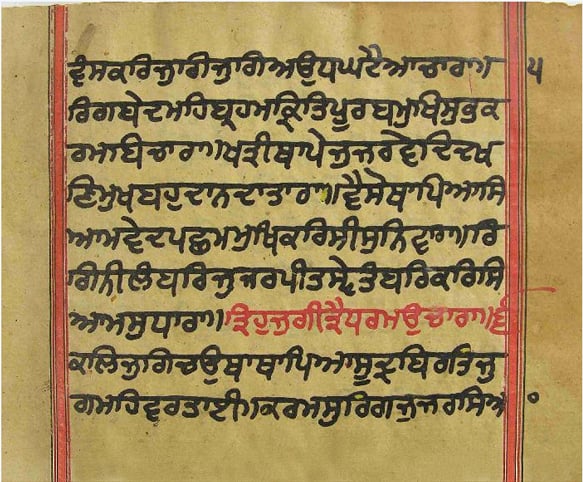 ਵੰਸਕਰਿਜੁਗਿਜੁਗਿਅਉਧਘਟੈਆਚਾਰਾ॥ ੫
ਰਿਗਬੇਦਮਹਿਬ੍ਰਹਮਕ੍ਰਿਤਿਪੂਰਬਮੁਖਿਸੁਭਕ
ਰਮਬਿਚਾਰਾ॥ਖਤ੍ਰੀਥਾਪੇਜੁਜਰਵੇਦਿਦਖ
ਣਿਮੁਖਬਹੁਦਾਨਦਾਤਾਰਾ॥ਵੈਸੋਥਾਪਿਆਸਿ
ਆਮਵੇਦਪਛਮਮੁਖਿਕਰਿਸੀਸੁਨਿਵਾਰਾ॥ਰਿ
ਗਿਨੀਲੰਬਰਿਜੁਜਰਪੀਤਸ੍ਵੇਤੰਬਰਿਕਰਿਸਿ
ਆਮਸੁਧਾਰਾ॥ਤ੍ਰਿਹੁਜੁਗੀਤ੍ਰੈਧਰਮਉਚਾਰਾ॥੬
ਕਲਿਜੁਗਿਚਉਥਾਥਾਪਿਆਸੂਦ੍ਰਬਿਰਤਿਜੁ
ਗਮਹਿਵਰਤਾਈ॥ਕਰਮਸੁਰਿਗਜੁਜਰਸਿਅ